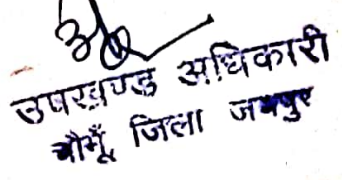 उपखण्ड अधिकारी
चौमूँ, जिला जयपुर